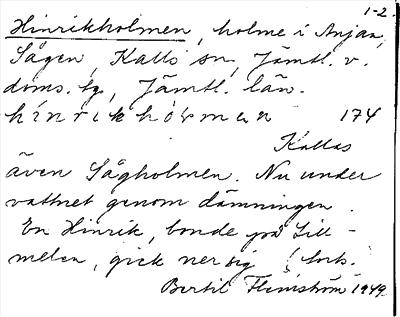 1-2.
Hinrikholmen, holme i Anjan,
Sågen, Kalls sn, Jämtl. v.
doms. tg, Jämtl. län.
hinrikhólmen 174
Kallas
även Sågholmen. Nu under
vattnet genom dämningen.
En Hinrik, bonde på Sill-
melen, gick ner sig
Bertil Flemström 1949.